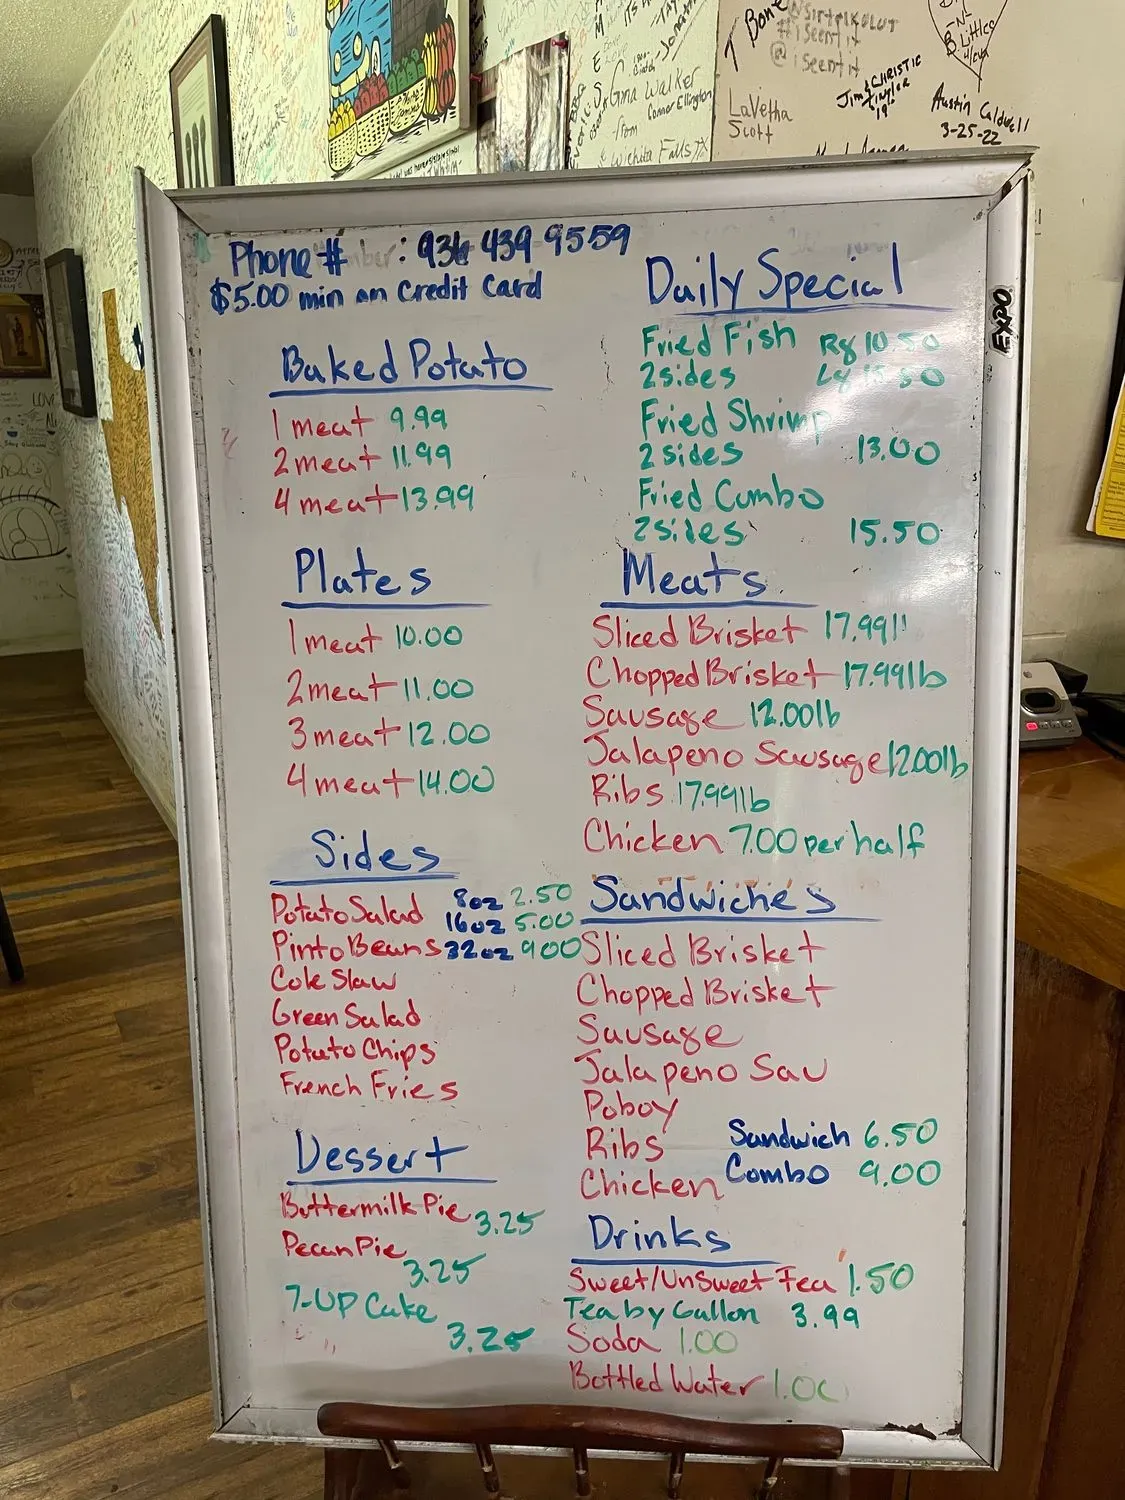 T Bone
#iseenit
@iseenit
B Little
Gina Walker
Connor Ellington
from
Wichita Falls TX
LaVetha
Scott
Jim & CHRISTIE
Taylor
Austin Caldwell
3-25-22
EXPO
Phone # : 936 439 9559
$5.00 min on Credit Card
Baked Potato
1 meat 9.99
2 meat 11.99
4 meat 13.99
Plates
1 meat 10.00
2 meat 11.00
3 meat 12.00
4 meat 14.00
Sides
Potato Salad 8oz 2.50
16oz 5.00
Pinto Beans 32oz 9.00
Cole Slaw
Green Salad
Potato Chips
French Fries
Dessert
Buttermilk Pie 3.25
Pecan Pie
3.25
7-UP Cake
3.25
Daily Special
Fried Fish Rg 10.50
2 sides Lg
Fried Shrimp
2 sides 13.00
Fried Combo
2 sides 15.50
Meats
Sliced Brisket 17.99
Chopped Brisket 17.99lb
Sausage 12.00lb
Jalapeno Sausage 12.00lb
Ribs 17.99lb
Chicken 7.00 per half
Sandwiches
Sliced Brisket
Chopped Brisket
Sausage
Jalapeno Sau
Poboy
Ribs Sandwich 6.50
Chicken Combo 9.00
Drinks
Sweet/UnSweet Tea 1.50
Tea by Gallon 3.99
Soda 1.00
Bottled Water 1.00